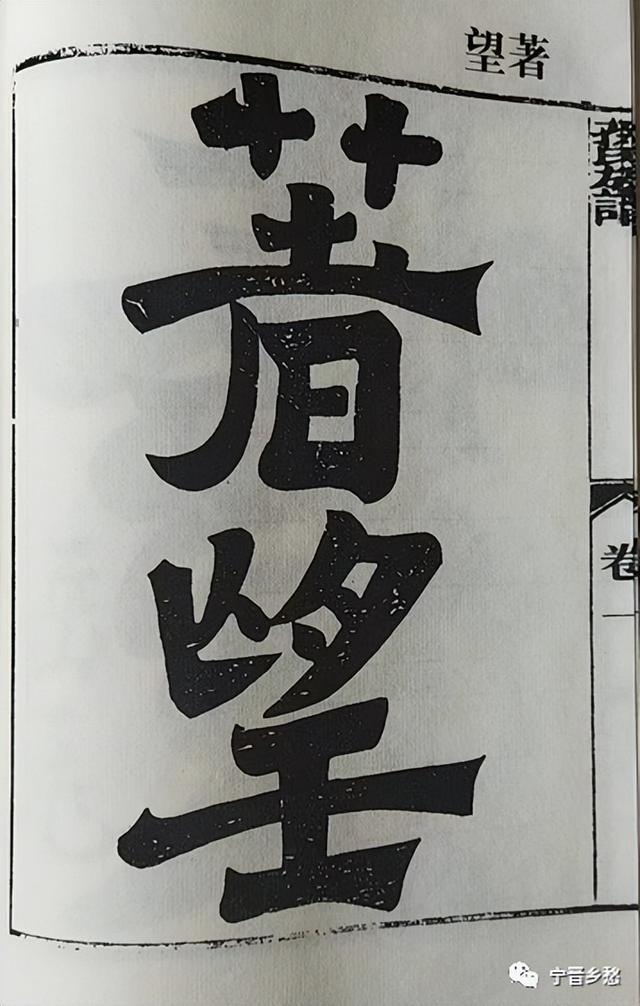 著望
著望
卷
宁晋乡愁